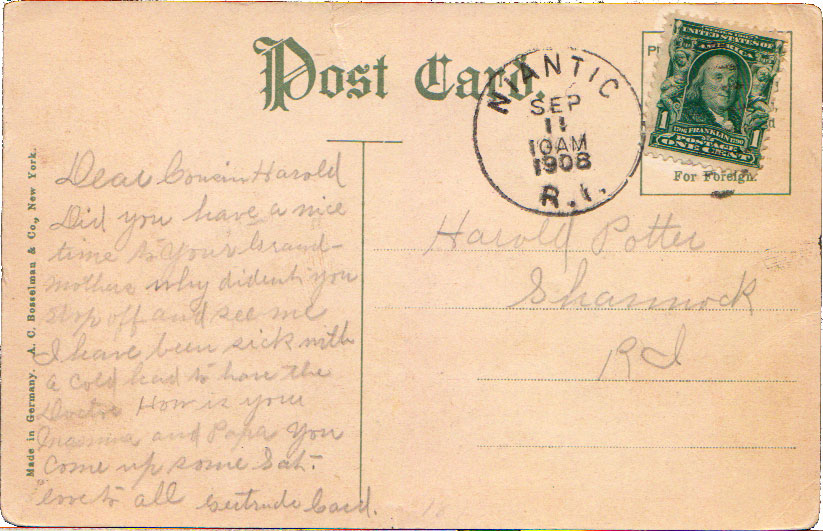 Post Card.
NIANTIC
SEP
11
10AM
1908
R.I.
UNITED STATES OF
AMERICA
1 FRANKLIN 1
POSTAGE
ONE CENT
For Foreign.
Made in Germany. A. C. Bosselman & Co., New York.
Dear Cousin Harold
Did you have a nice
time to your Grand-
mothers why dident you
stop off and see me
I have been sick with
a cold had to have the
Doctor How is your
Mamma and Papa You
come up some Sat.
love to all Gertrude Card.
Harold Potter
Shannock
RI